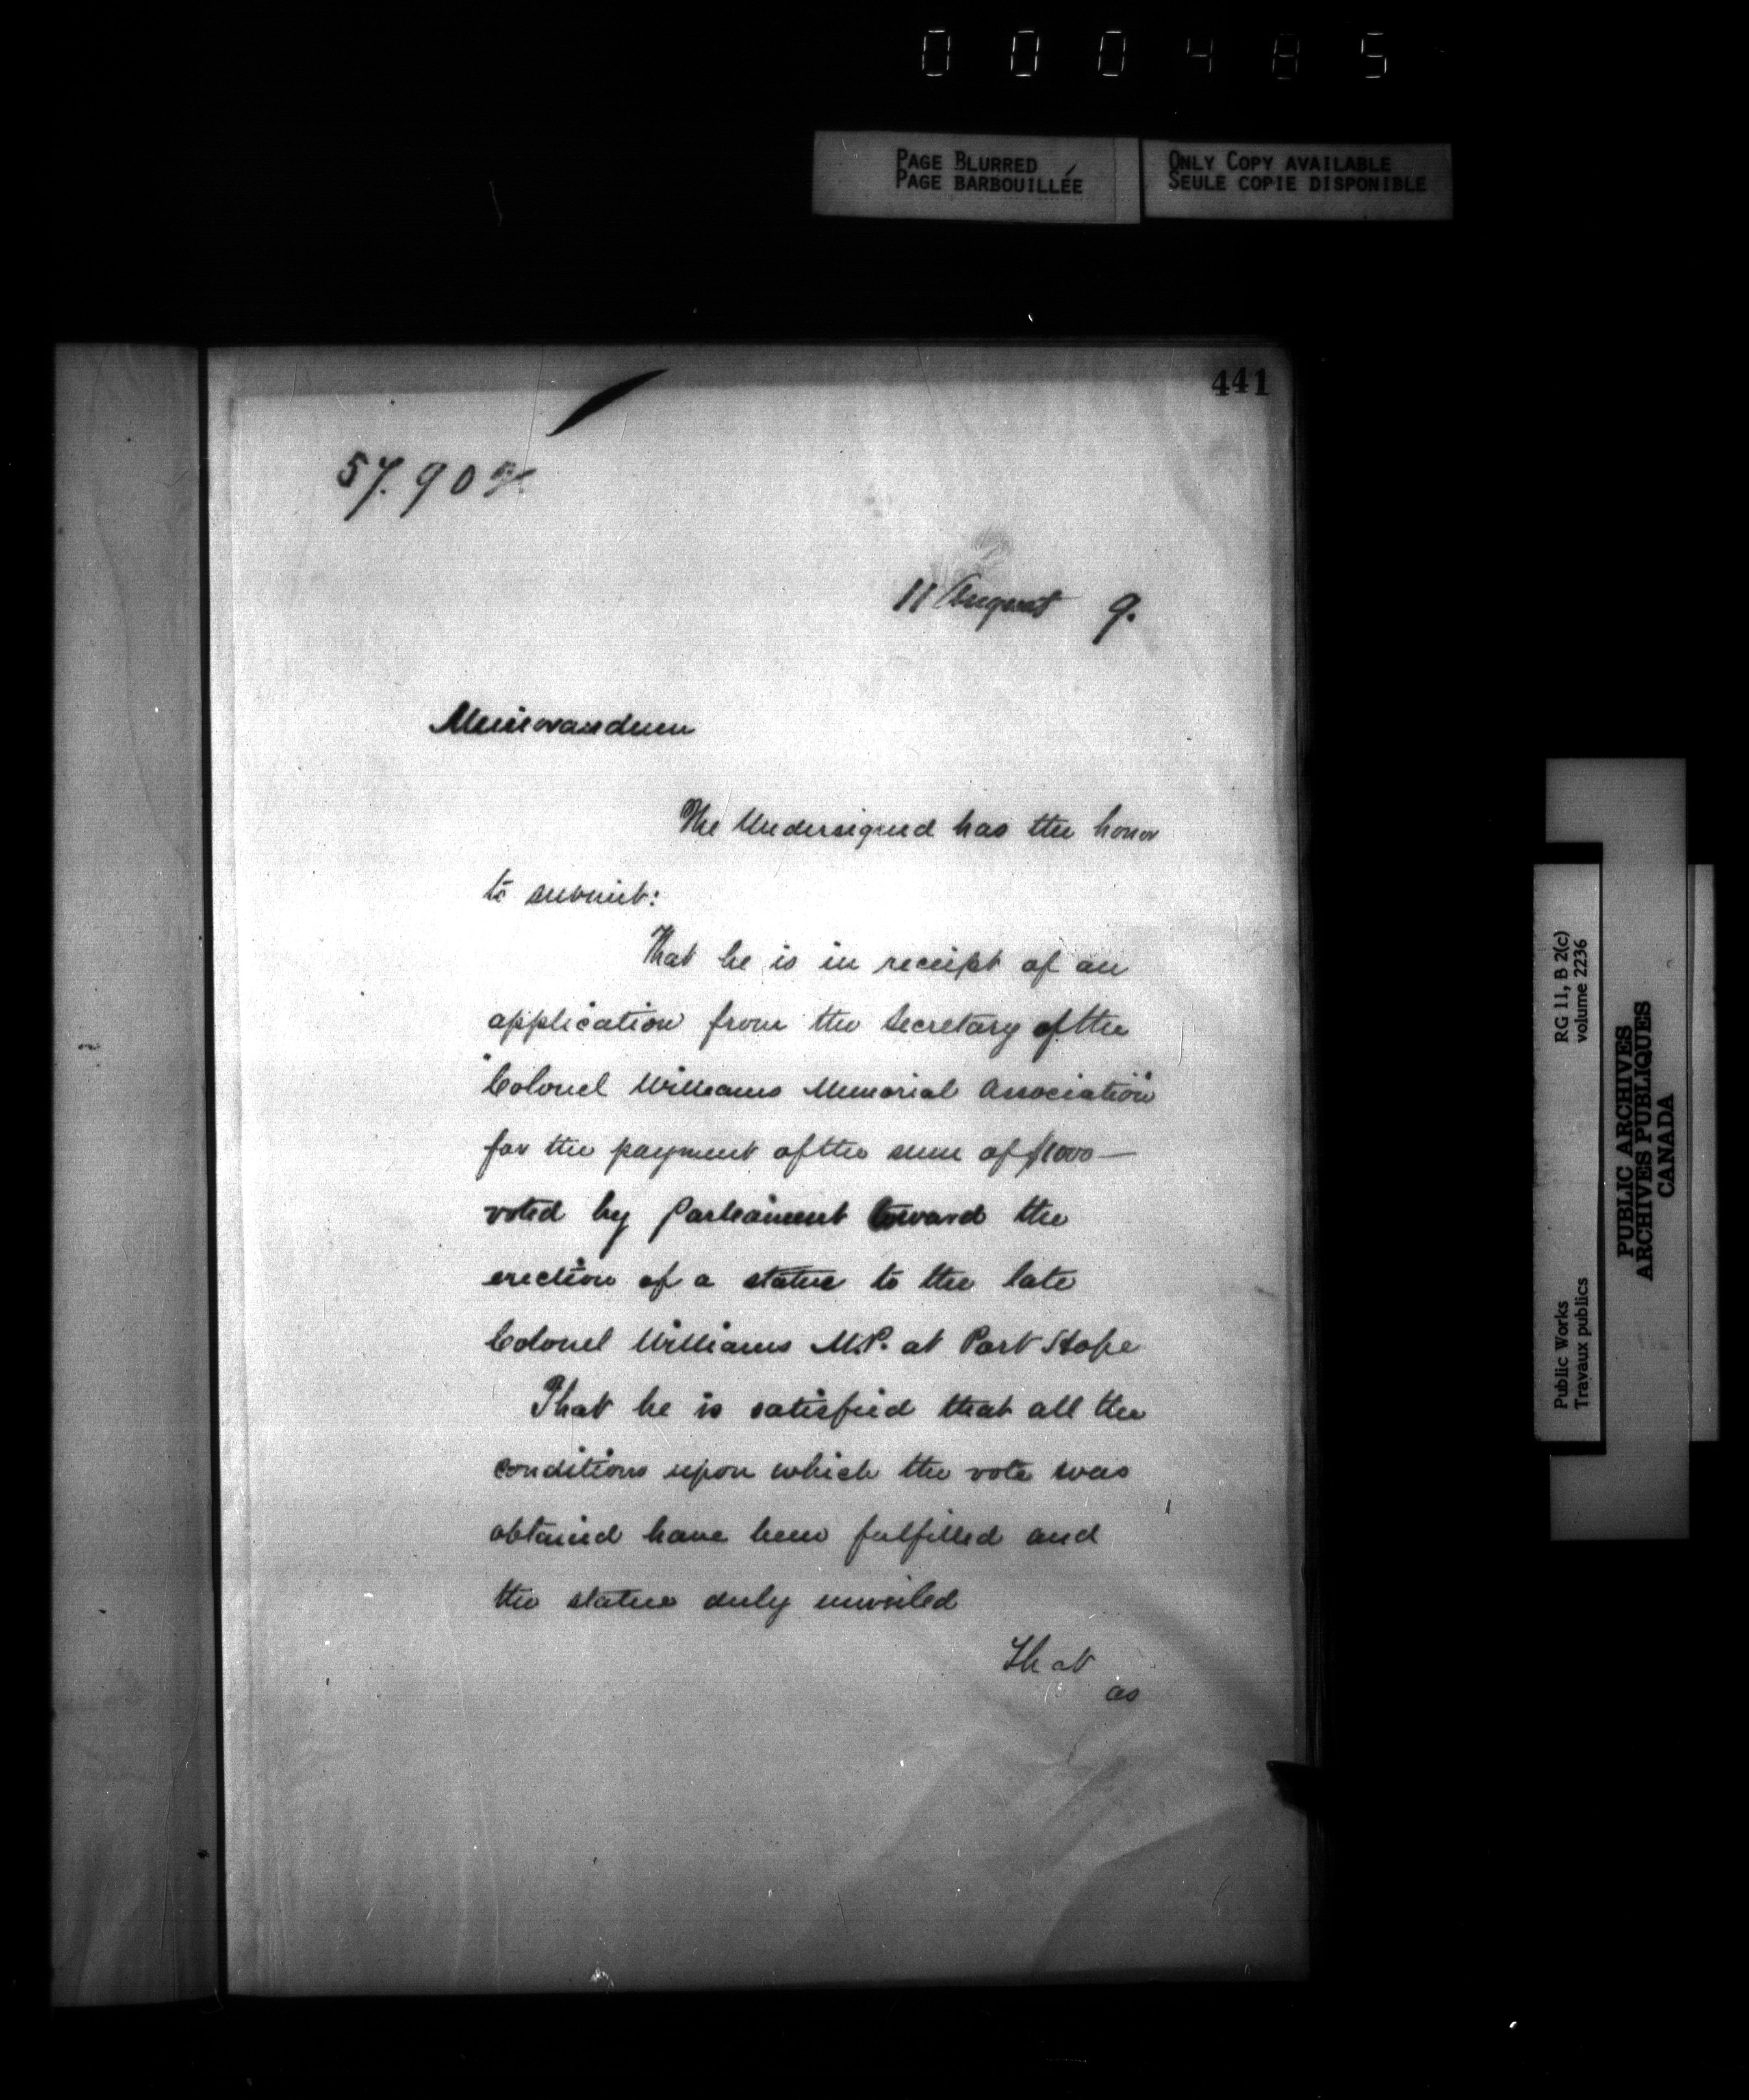 000485
PAGE BLURRED
PAGE BARBOUILLÉE
ONLY COPY AVAILABLE
SEULE COPIE DISPONIBLE
441
57.90
11 August 9.
Memorandum
The Undersigned has the honor
to submit:
That he is in receipt of an
application from the Secretary of the
"Colonel Williams Memorial Association"
for the payment of the sum of $1000—
voted by Parliament toward the
erection of a statue to the late
Colonel Williams M.P. at Port Hope
That he is satisfied that all the
conditions upon which the vote was
obtained have been fulfilled and
the statue duly unveiled
That
as
Public Works
Travaux publics
RG 11, B 2(c)
volume 2236
PUBLIC ARCHIVES
ARCHIVES PUBLIQUES
CANADA